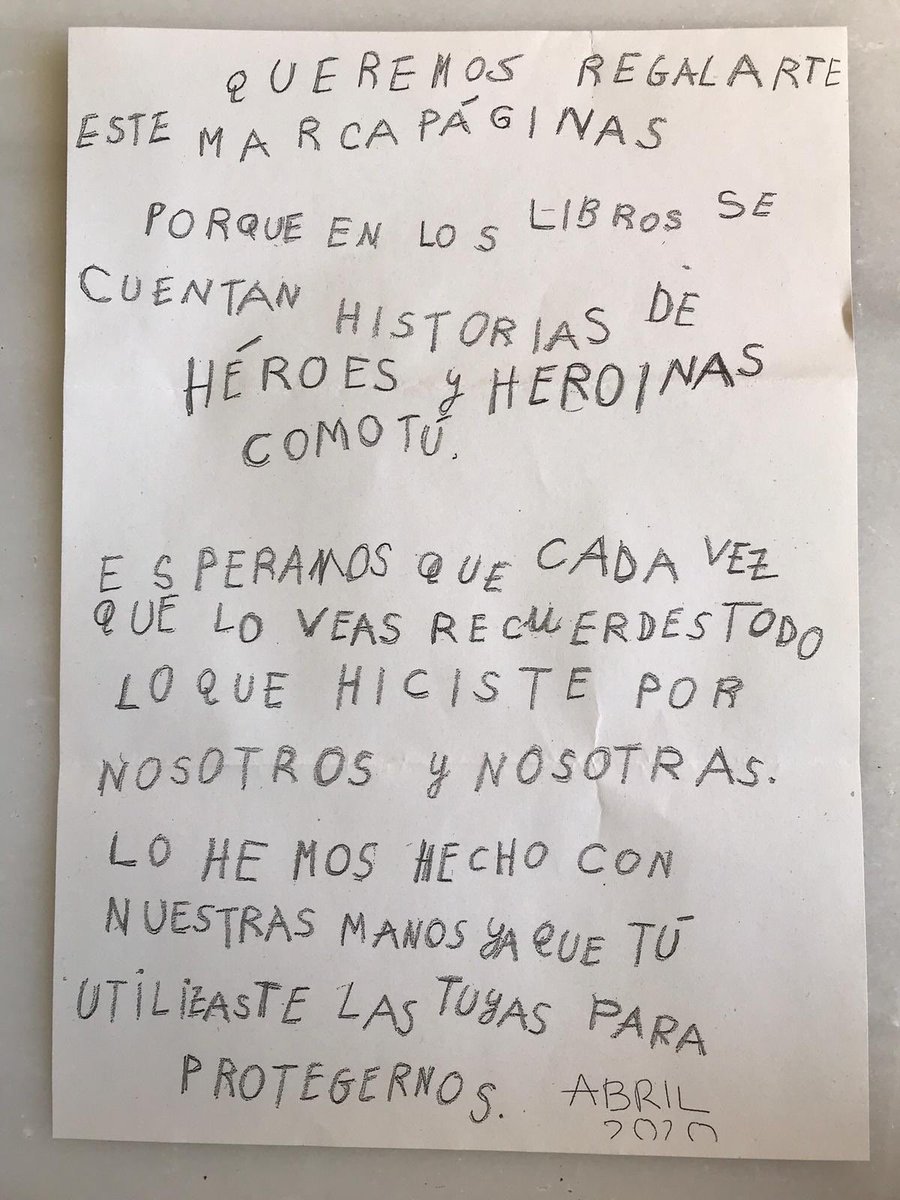 QUEREMOS REGALARTE
ESTE MARCAPÁGINAS
PORQUE EN LOS LIBROS SE
CUENTAN HISTORIAS DE
HÉROES y HEROINAS
COMO TÚ.
ESPERAMOS QUE CADA VEZ
QUE LO VEAS RECUERDES TODO
LO QUE HICISTE POR
NOSOTROS y NOSOTRAS.
LO HEMOS HECHO CON
NUESTRAS MANOS yA QUE TÚ
UTILIZASTE LAS TUyAS PARA
PROTEGERNOS. ABRIL
2020